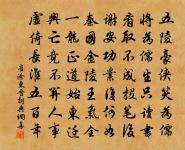 五陵豪俠笑為儒
將為儒生只讀書
看取不成投筆後
謝安功業復何如
秦國金陵王氣全
一龍正道始東遷
興亡竟不關人事
虛倚長淮五百年
崔涂東晉